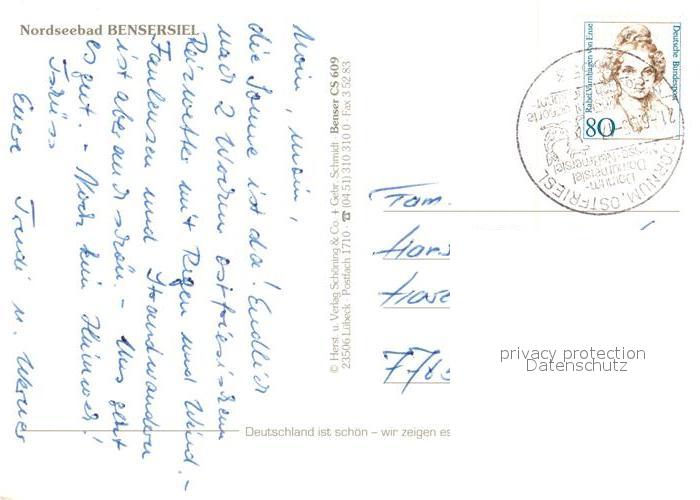 Nordseebad BENSERSIEL
Moin, moin,
die Sonne ist da! Endlich
nach 2 Wochen ostfriesischem
Reizwetter mit Regen und Wind. -
Faulenzen und Strandwandern
ist aber auch schön. - Uns geht
es gut. - Noch kein Heimweh!
Tschüss
Eure Trudi u. Werner
© Herst. u. Verlag Schöning & Co. + Gebr. Schmidt · Benser CS 609
23506 Lübeck · Postfach 1710 · ☎ (04 51) 310 310 0 · Fax 3 52 83
Deutsche Bundespost
Rahel Varnhagen von Ense
80
DORNUM, OSTFRIESL
Dornum-
Dornumersiel
Fam.
Hors
Hase
privacy protection
Datenschutz
Deutschland ist schön – wir zeigen es